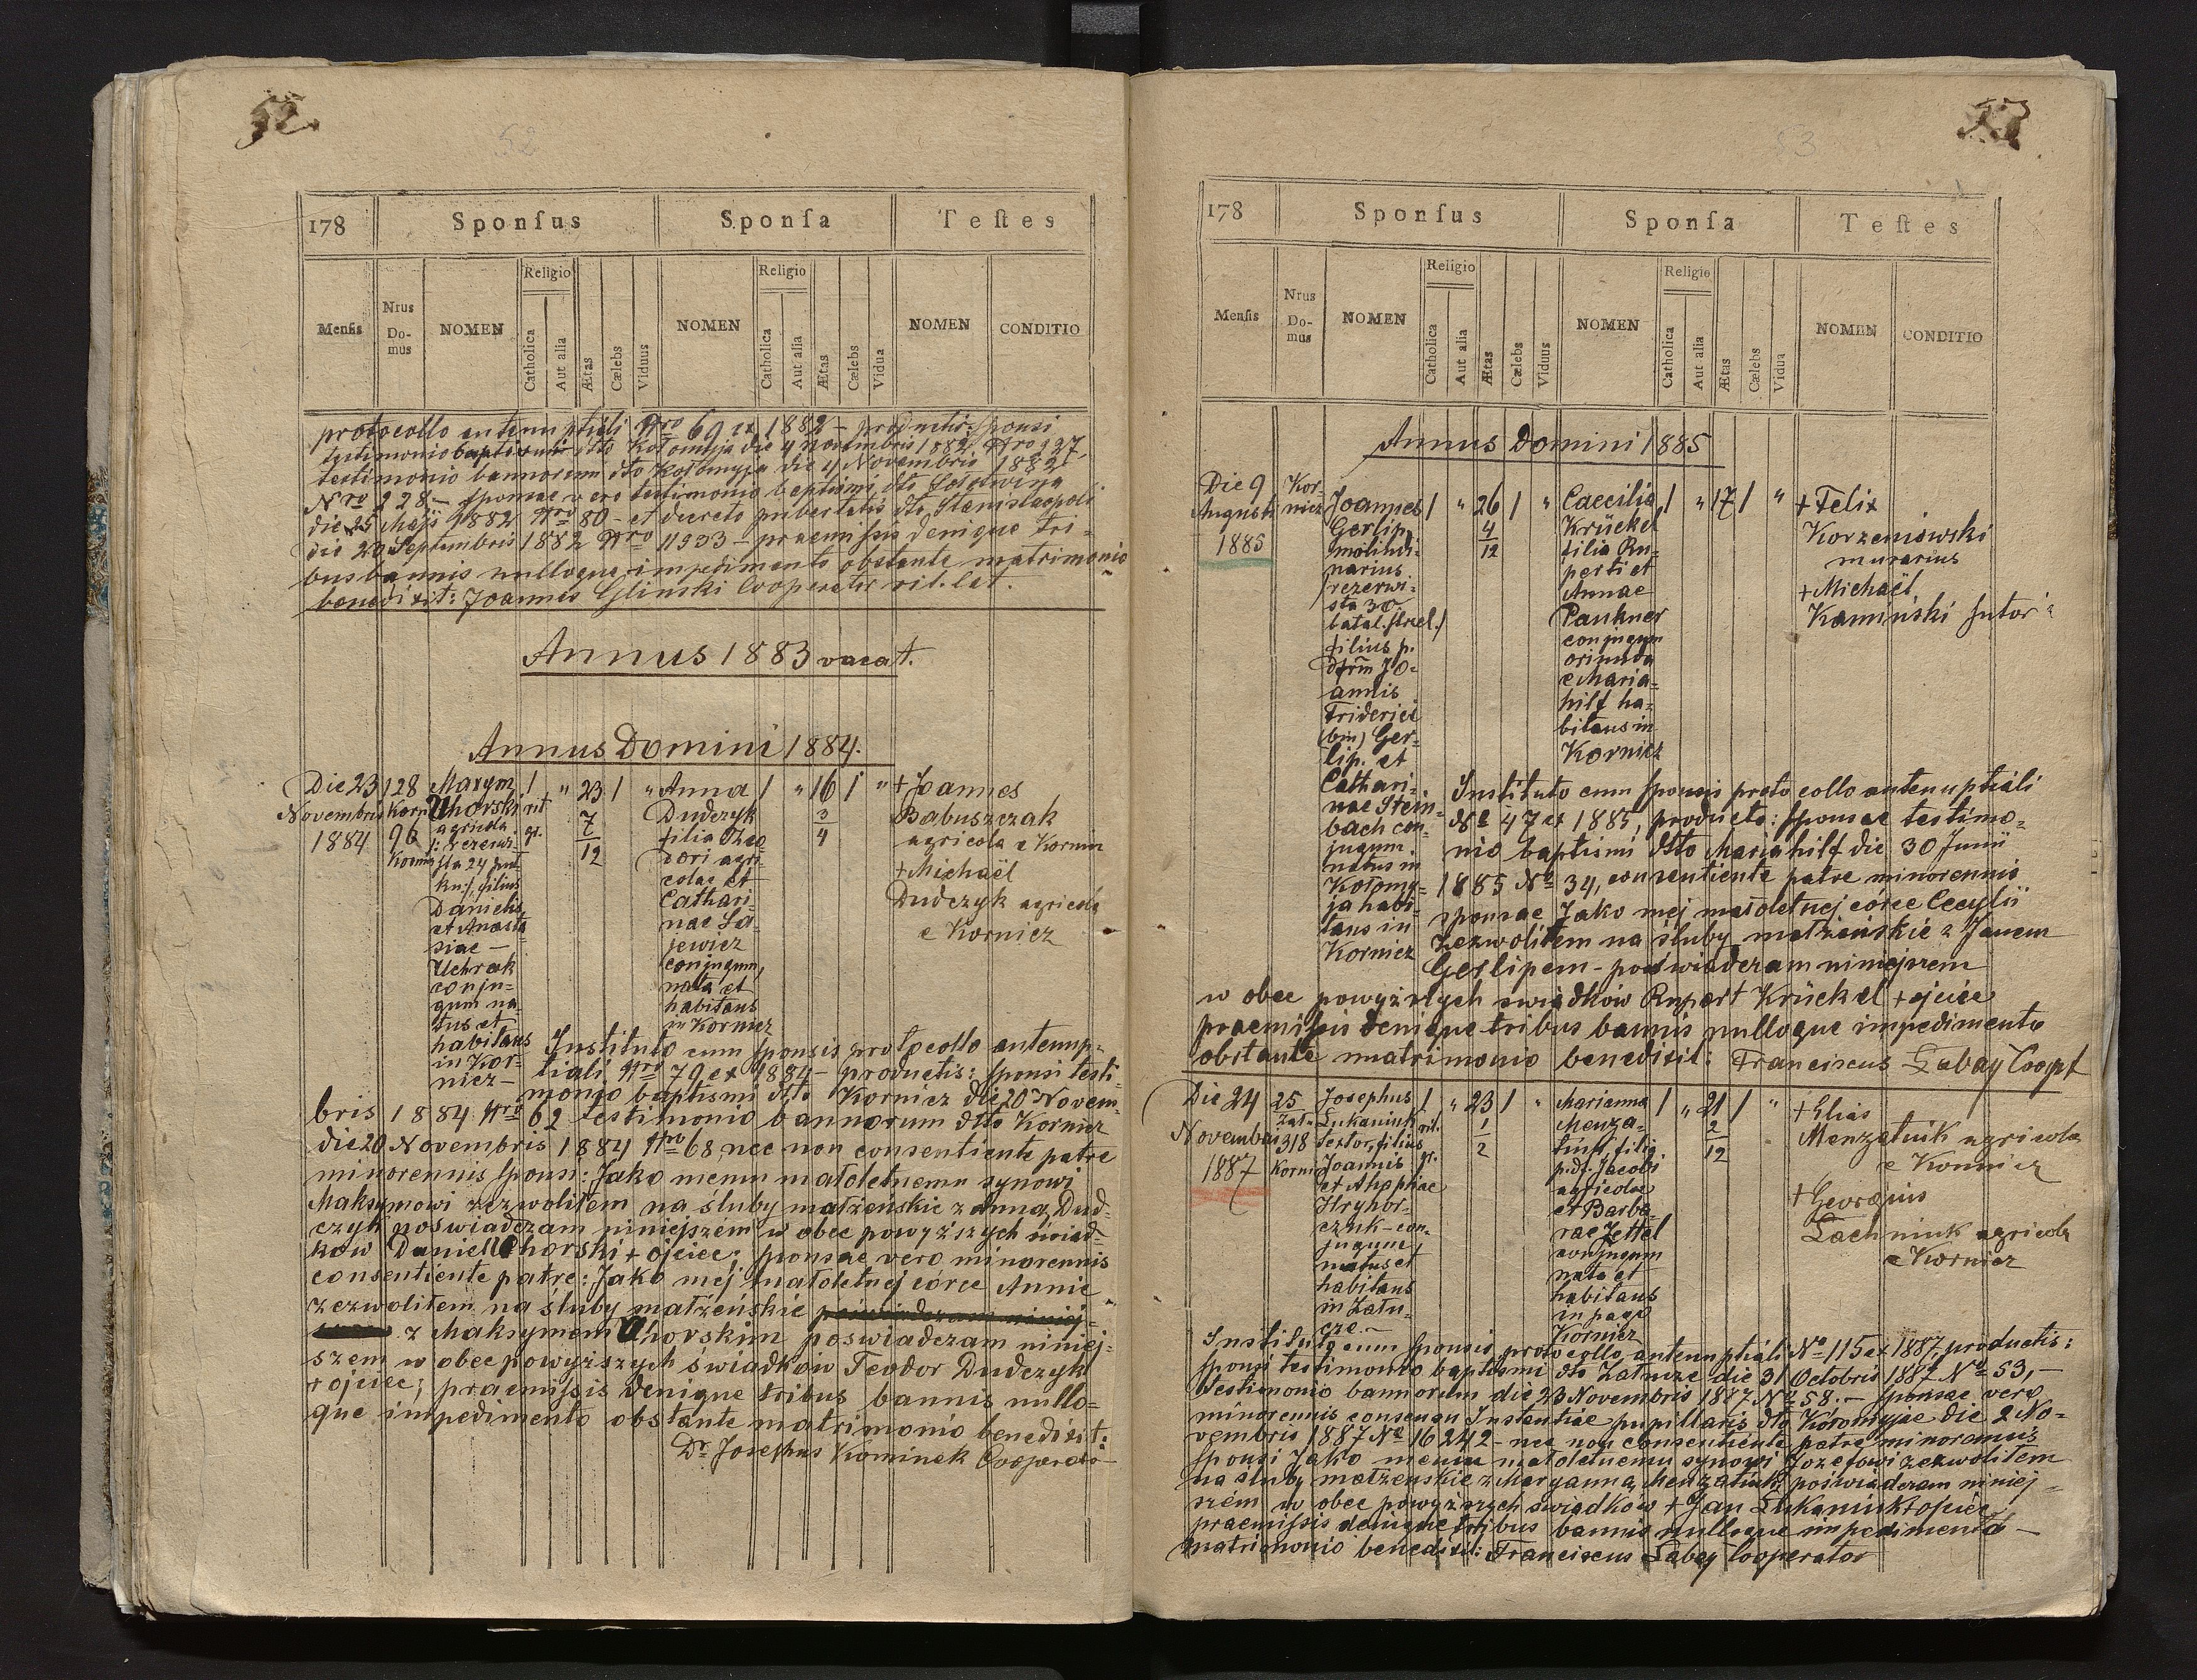 52.
52
178
Sponsus
Sponsa
Testes
Mensis
Nrus Domus
NOMEN
Religio
Catholica
Aut alia
Ætas
Cælebs
Viduus
NOMEN
Religio
Catholica
Aut alia
Ætas
Cælebs
Vidua
NOMEN
CONDITIO
protocollo antenuptiali Nro 69 ex 1882 – productis: sponsi
testimonio baptismi dto Kołomyja die 4 Novembris 1882 Nro 227,
testimonio bannorum dto Kołomyja die 4 Novembris 1882
Nro 228 – sponsae vero testimonio baptismi dto
die 25 Maji 1882 Nro 80 – et decreto pubertatis dto Stanislaopoli
die 20 Septembris 1882 Nro 11933 – praemissis denique tri-
bus bannis nulloque impedimento obstante matrimonio
benedixit: Joannes Glinski Cooperator rit. lat.
Annus 1883 vacat.
Annus Domini 1884.
Die 23
Novembris
1884
128
Korn
96
Kornicz
Maxym
Uhorski rit.
agricola gr.
/: rezerwi-
sta 24 puł
ku :/, filius
Danielis
et Anasta
siae –
Uchrak
conju-
gum na-
tus et
habitans
in Kor-
nicz –
1 " 23 1 "
7
12
Anna
Dudczyk
filia Theo
dori agri-
colae et
Cathari-
nae La-
jewicz
conjugum,
nata et
habitans
in Kornicz
1 " 16 1 "
3
4
+ Joannes
Babuszczak
agricola e Kornicz
+ Michaël
Dudczyk agricola
e Kornicz
Instituto cum sponsis protocollo antenup-
tiali Nro 79 ex 1884 – productis: sponsi testi-
monio baptismi dto Kornicz die 20 Novem-
bris 1884 Nro 62 testimonio bannorum dtto Kornicz
die 20 Novembris 1884 Nro 68 nec non consentiente patre
minorennis sponsi: Jako memu małoletnemu synowi
Maksymowi zezwolitem na śluby małżeńskie z Anną Dud-
czyk poświadczam niniejszém w obec powyższych świad-
ków Daniel Uhorski + ojciec; sponsae vero minorennis
consentiente patre: Jako mej małoletnej córce Annie
zezwolitem na śluby małżeńskie
z Maksymem Uhorskim poświadczam niniej-
szem w obec powyższych świadków Teodor Dudczyk
+ ojciec; praemissis denique tribus bannis nullo-
que impedimento obstante matrimonio benedixit:
Dr Josephus Kominek Cooperator
53
53
178
Sponsus
Sponsa
Testes
Mensis
Nrus Domus
NOMEN
Religio
Catholica
Aut alia
Ætas
Cælebs
Viduus
NOMEN
Religio
Catholica
Aut alia
Ætas
Cælebs
Vidua
NOMEN
CONDITIO
Annus Domini 1885
Die 9
Augusti
1885
Kor-
nicz
Joannes
Gerlip,
molindi-
narius
rezerwi-
sta 30
batal. strzel./
filius p.
dfrm Jo-
annis
Friderici
(bin) Ger-
lip. et
Cathari-
nae Stein-
bach con-
jugum.
natus in
Kołomy-
ja habi-
tans in
Kornicz
1 " 26 1 "
4
12
Caecilia
Krückel
filia Ru-
perti et
Annae
Paukner
conjugum
oriunda
e Maria-
hilf ha-
bitans in
Kornicz
1 " 17 1 "
+ Felix
Korzeniowski
murarius
+ Michaël
Kamiński sutor
Instituto cum sponsis protocollo antenuptiali
No 47 ex 1885, producto: sponsae testimo-
nio baptismi dtto Mariahilf die 30 Junii
1885 No 34, consentiente patre minorennis
sponsae Jako mej małoletnej córce Cecylii
zezwolitem na śluby małżeńskie z Janem
Gerlipem – poświadczam niniejszem
w obec powyższych świadków Rupert Krückel + ojciec
praemissis denique tribus bannis nulloque impedimento
obstante matrimonio benedixit: Franciscus Łabay Coopt
Die 24
Novembris
1887
25
Zału-
318
Kornicz
Josephus
Łukaniuk rit.
sector, filius
Joannis gr.
et Ahaphiae
Hryhor-
czuk – con-
jugum,
natus et
habitans
in Zału-
cze. –
1 " 23 1 "
1
2
Marianna
Menza-
tiuk, filia
p.df. Jacobi
agricolae
et Barba-
rae Zettel
conjugum
nata et
habitans
in pago
Kornicz
1 " 21 1 "
2
12
+ Elias
Menzatiuk agricola
e Kornicz
+ Georgius
Lachniuk agricola
e Kornicz
Instituto cum sponsis protocollo antenuptiali No 115 ex 1887 productis:
sponsi testimonio baptismi dto Załucze die 31 Octobris 1887 No 53, –
testimonio bannorum die 23 Novembris 1887 No 58. – sponsae vero
minorennis consensu Instantiae pupillaris dto Kołomyjae die 2 No-
vembris 1887 No 16242 – nec non consentiente patre minorennis
sponsi Jako memu małoletnemu synowi Józefowi zezwolitem
na śluby małżeńskie z Maryanną Menzatiuk poświadczam niniej-
szém w obec powyższych świadków + Jan Łukaniuk + ojciec
praemissis denique tribus bannis nulloque impedimento –
matrimonio benedixit: Franciscus Łabay Cooperator